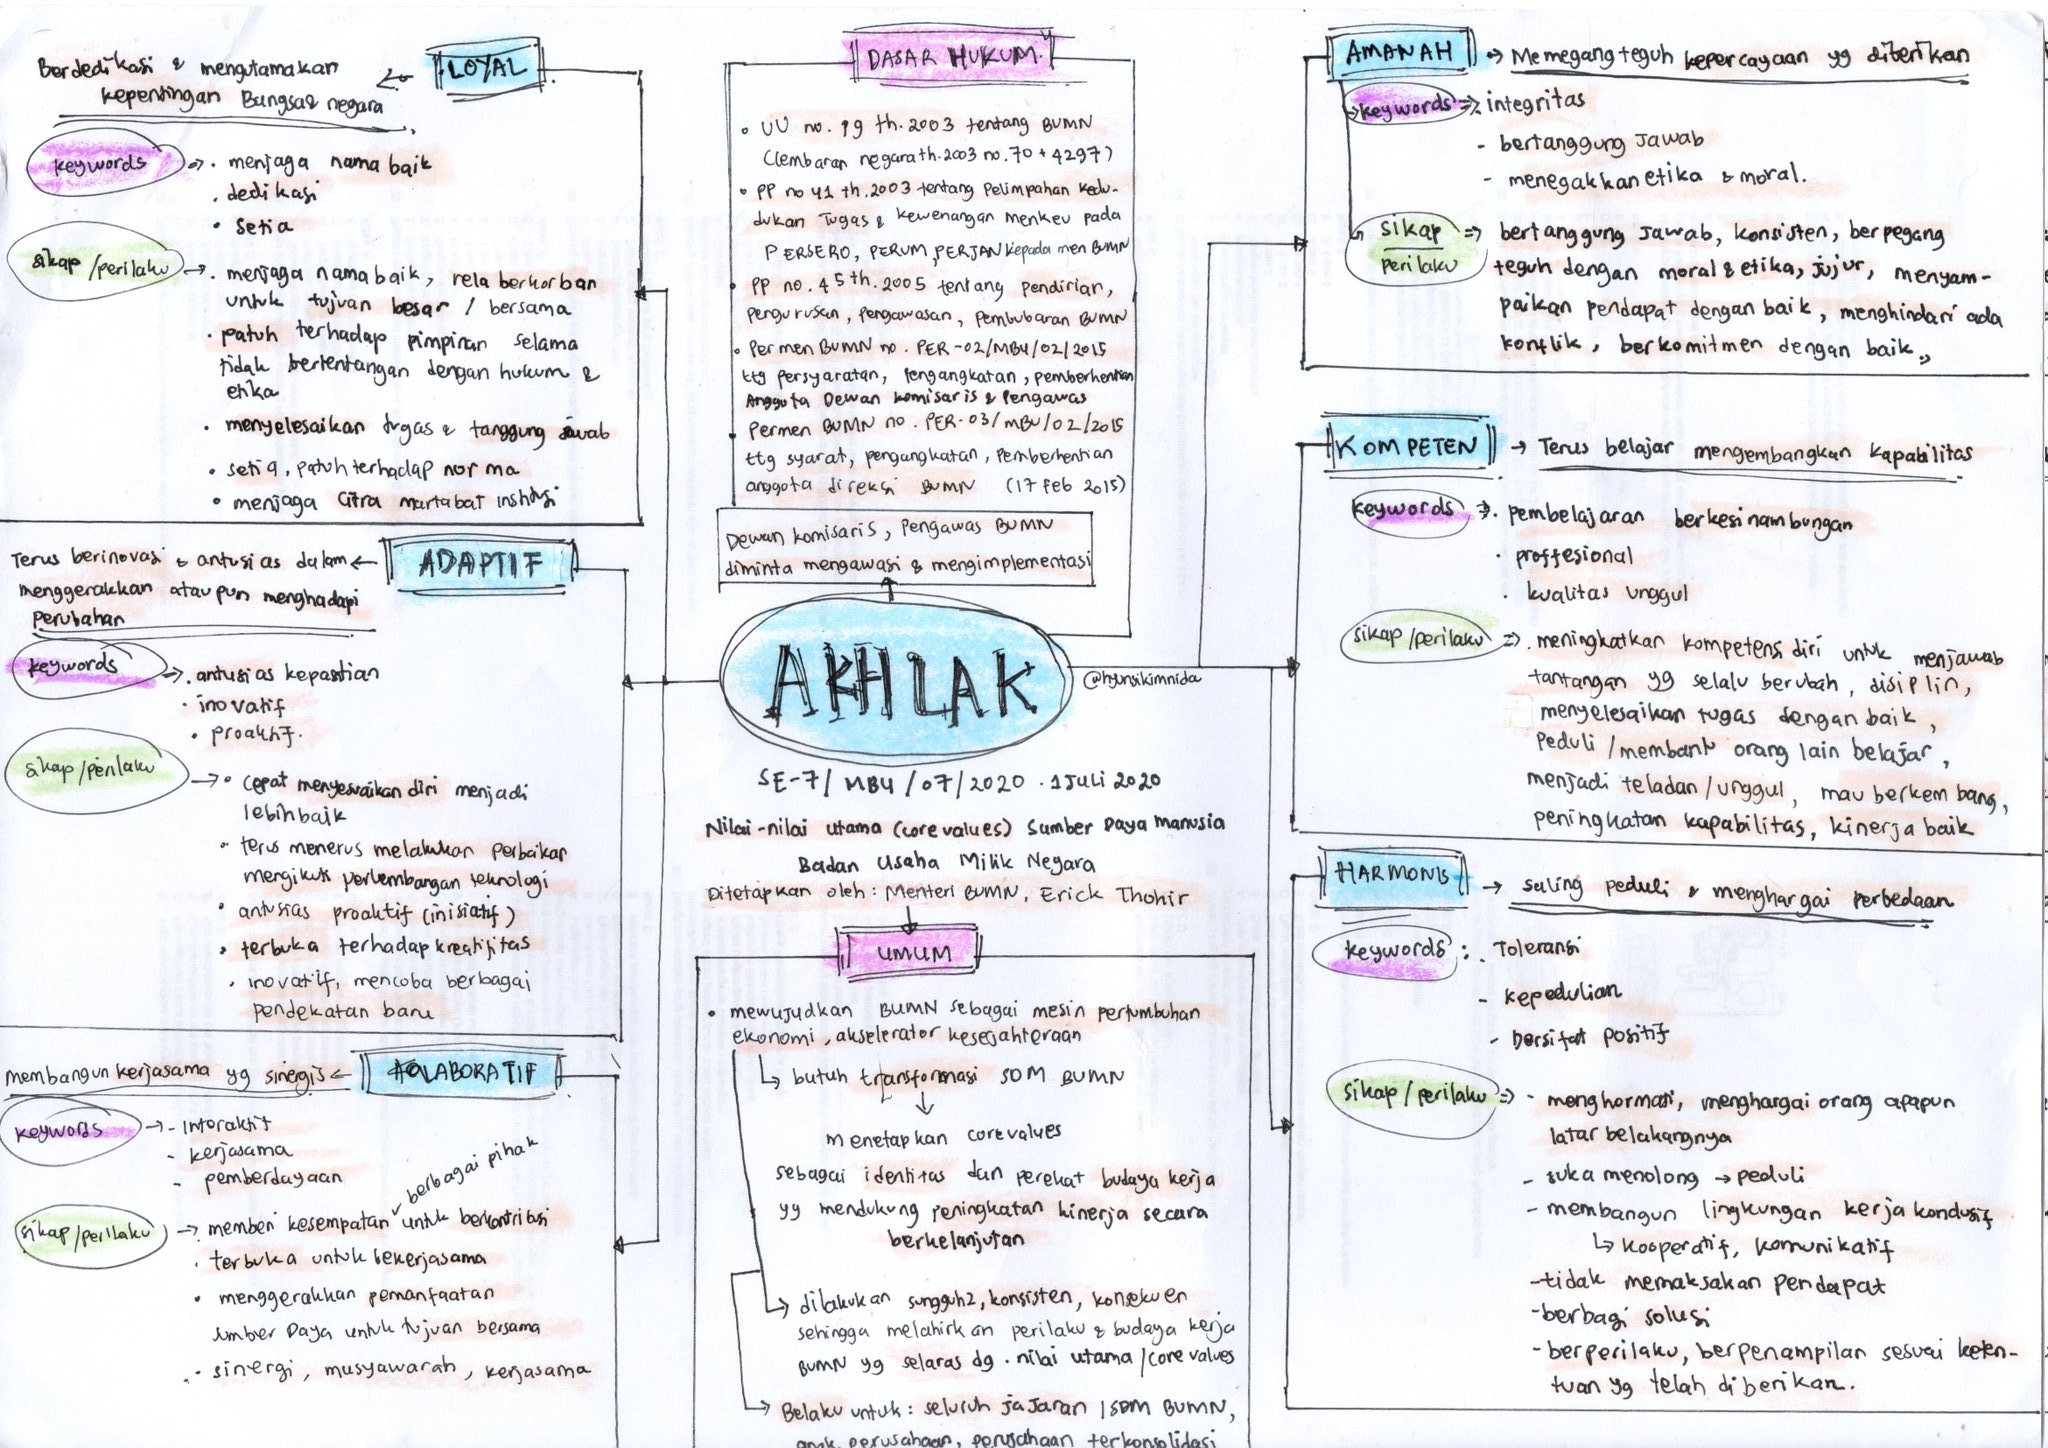 LOYAL
Berdedikasi & mengutamakan
kepentingan Bangsa & negara
keywords
• menjaga nama baik
• dedikasi
• setia
sikap/perilaku
• menjaga nama baik, rela berkorban
untuk tujuan besar / bersama
• patuh terhadap pimpinan selama
tidak bertentangan dengan hukum &
etika
• menyelesaikan tugas & tanggung jawab
• setia, patuh terhadap norma
• menjaga citra martabat institusi
ADAPTIF
Terus berinovasi & antusias dalam
menggerakkan ataupun menghadapi
perubahan
keywords
• antusias kepastian
• inovatif
• proaktif.
sikap/perilaku
• cepat menyesuaikan diri menjadi
lebih baik
• terus menerus melakukan perbaikan
mengikuti perkembangan teknologi
• antusias proaktif (inisiatif)
• terbuka terhadap kreatifitas
• inovatif, mencoba berbagai
pendekatan baru
KOLABORATIF
membangun kerjasama yg sinergis
keywords
- interaktif
- kerjasama
- pemberdayaan
sikap/perilaku
• memberi kesempatan berbagai pihak untuk berkontribusi
• terbuka untuk bekerjasama
• menggerakkan pemanfaatan
sumber Daya untuk tujuan bersama
• sinergi, musyawarah, kerjasama
DASAR HUKUM.
• UU no. 19 th. 2003 tentang BUMN
(lembaran negara th. 2003 no. 70 + 4297)
• PP no 41 th. 2003 tentang Pelimpahan Kedu-
dukan Tugas & kewenangan menkeu pada
PERSERO, PERUM, PERJAN kepada men BUMN
• PP no. 45 th. 2005 tentang pendirian,
pengurusan, pengawasan, pembubaran BUMN
• Permen BUMN no. PER-02/MBU/02/2015
ttg persyaratan, pengangkatan, pemberhentian
Anggota Dewan komisaris & Pengawas
• Permen BUMN no. PER-03/MBU/02/2015
ttg syarat, pengangkatan, Pemberhentian
anggota direksi BUMN (17 Feb 2015)
Dewan komisaris, Pengawas BUMN
diminta mengawasi & mengimplementasi
AKHLAK
@hyunsikimnida
SE-7/ MBU /07/2020 . 1 Juli 2020
Nilai-nilai utama (core values) Sumber Daya manusia
Badan Usaha Milik Negara
Ditetapkan oleh : Menteri BUMN, Erick Thohir
UMUM
• mewujudkan BUMN sebagai mesin pertumbuhan
ekonomi, akselerator kesejahteraan
butuh transformasi SDM BUMN
menetapkan core values
sebagai identitas dan perekat budaya kerja
yg mendukung peningkatan kinerja secara
berkelanjutan
dilakukan sungguh2, konsisten, konsekuen
sehingga melahirkan perilaku & budaya kerja
BUMN yg selaras dg. nilai utama / core values
Belaku untuk : seluruh jajaran / SDM BUMN,
anak perusahaan, perusahaan terkonsolidasi
AMANAH
Memegang teguh kepercayaan yg diberikan
keywords
• integritas
- bertanggung jawab
- menegakkan etika & moral.
sikap
perilaku
bertanggung jawab, konsisten, berpegang
teguh dengan moral & etika, jujur, menyam-
paikan pendapat dengan baik, menghindari ada
konflik, berkomitmen dengan baik
KOMPETEN
Terus belajar mengembangkan kapabilitas
keywords
• pembelajaran berkesinambungan
• proffesional
• kualitas unggul
sikap/perilaku
• meningkatkan kompetensi diri untuk menjawab
tantangan yg selalu berubah, disiplin,
menyelesaikan tugas dengan baik,
peduli/membantu orang lain belajar,
menjadi teladan/unggul, mau berkembang,
peningkatan kapabilitas, kinerja baik
HARMONIS
saling peduli & menghargai perbedaan
keywords :
• Toleransi
- kepedulian
- bersifat positif
sikap/perilaku
- menghormati, menghargai orang apapun
latar belakangnya
- suka menolong → peduli
- membangun lingkungan kerja kondusif
kooperatif, komunikatif
- tidak memaksakan pendapat
- berbagi solusi
- berperilaku, berpenampilan sesuai keten-
tuan yg telah diberikan.